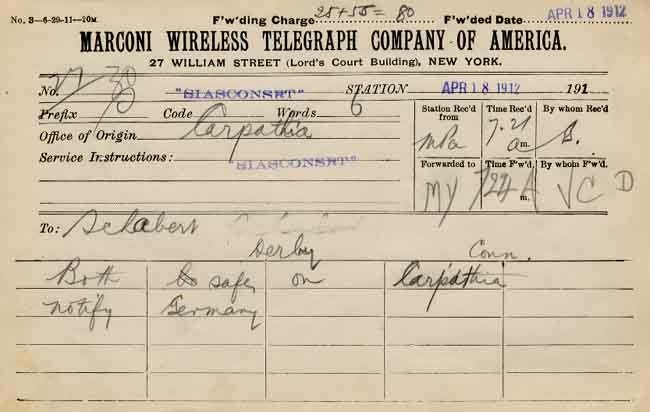 No. 3—6-29-11—20M. F'w'ding Charge 25+55= 80 F'w'ded Date APR 18 1912
MARCONI WIRELESS TELEGRAPH COMPANY OF AMERICA.
27 WILLIAM STREET (Lord's Court Building), NEW YORK.
No. "SIASCONSET" STATION APR 18 1912 191
Prefix Code Words 6
Office of Origin Carpathia
Service Instructions: "SIASCONSET"
Station Rec'd from Time Rec'd By whom Rec'd
MPa 7.21 a m. B.
Forwarded to Time F'w'd. By whom F'w'd.
MY 724 A m. JCD
To: Schabert
Derby Conn.
Both safe on Carpathia
notify Germany